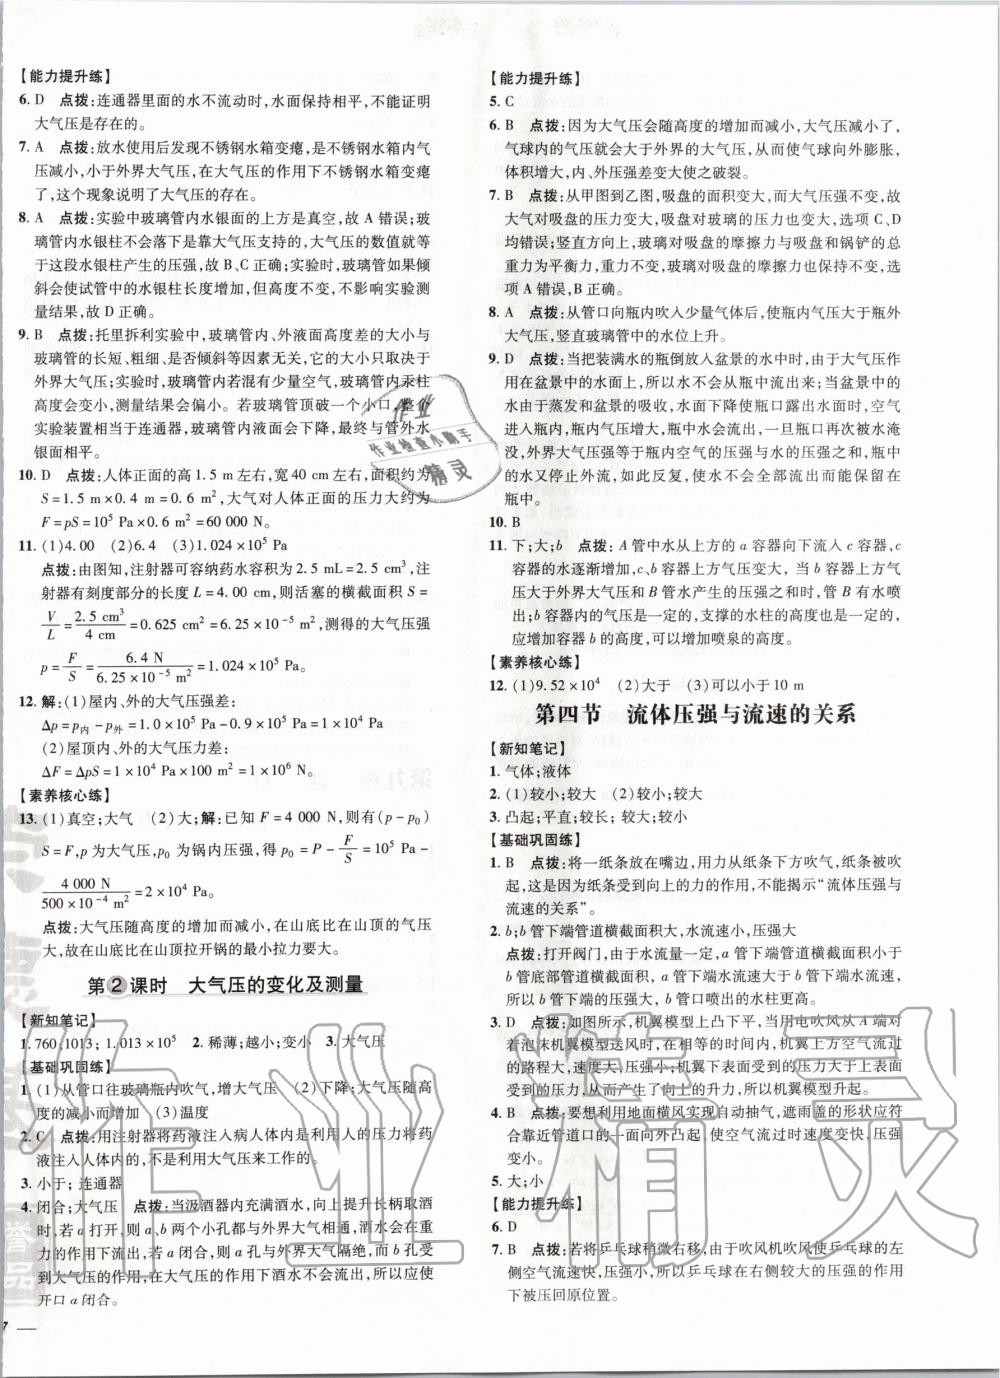 【能力提升练】
6. D 点拨:连通器里面的水不流动时,水面保持相平,不能证明
大气压是存在的。
7. A 点拨:放水使用后发现不锈钢水箱变瘪,是不锈钢水箱内气
压减小,小于外界大气压,在大气压的作用下不锈钢水箱变瘪
了,这个现象说明了大气压的存在。
8. A 点拨:实验中玻璃管内水银面的上方是真空,故 A 错误;玻
璃管内水银柱不会落下是靠大气压支持的,大气压的数值就等
于这段水银柱产生的压强,故 B、C 正确;实验时,玻璃管如果倾
斜会使试管中的水银柱长度增加,但高度不变,不影响实验测
量结果,故 D 正确。
9. B 点拨:托里拆利实验中,玻璃管内、外液面高度差的大小与
玻璃管的长短、粗细、是否倾斜等因素无关,它的大小只取决于
外界大气压;实验时,玻璃管内若混有少量空气,玻璃管内汞柱
高度会变小,测量结果会偏小。若玻璃管顶破一个小口,整个
实验装置相当于连通器,管内液面会下降,最终与管外水
银面相平。
10. D 点拨:人体正面的高 1.5 m 左右,宽 40 cm 左右,面积约为
S=1.5 m×0.4 m=0.6 m²,大气对人体正面的压力大约为
F=pS=10⁵ Pa×0.6 m²=60 000 N。
11. (1)4.00 (2)6.4 (3)1.024×10⁵ Pa
点拨:由图知,注射器可容纳药水容积为 2.5 mL=2.5 cm³,注
射器有刻度部分的长度 L=4.00 cm,则活塞的横截面积 S=
V/L=2.5 cm³/4 cm=0.625 cm²=6.25×10⁻⁵ m²,测得的大气压强
p=F/S=6.4 N/6.25×10⁻⁵ m²=1.024×10⁵ Pa。
12. 解:(1)屋内、外的大气压强差:
Δp=p内-p外=1.0×10⁵ Pa-0.9×10⁵ Pa=1×10⁴ Pa
(2)屋顶内、外的大气压力差:
ΔF=ΔpS=1×10⁴ Pa×130 m²=1.3×10⁶ N。
【素养核心练】
13. (1)真空;大气 (2)大;解:已知 F=4 000 N,则有(p-p₀)
S=F,p为大气压,p₀ 为锅内压强,得 p₀=P-F/S=P-
4 000 N/500×10⁻⁴ m²=2×10⁴ Pa。
点拨:大气压随高度的增加而减小,在山底比在山顶的气压
大,故在山底比在山顶拉开锅的最小拉力要大。
第2课时 大气压的变化及测量
【新知笔记】
1. 760;1013;1.013×10⁵ 2. 稀薄;越小;变小 3. 大气压
【基础巩固练】
1. (1)从管口往玻璃瓶内吹气,增大气压 (2)下降;大气压随高
度的减小而增加 (3)温度
2. C 点拨:用注射器将药液注入病人体内是利用人的压力将药
液注入体内,不是利用大气压来工作的。
3. 小于;连通器
4. 闭合;大气压 点拨:当汲酒器内充满酒水,向上提升长柄取酒
时,若 a 打开,则 a、b 两个小孔都与外界大气相通,酒水会在重
力的作用下流下来;若 a 闭合,则 a 孔与外界大气隔绝,而 b 孔受
到大气压的作用,在大气压的作用下酒水不会流出,故应使
开口 a 闭合。
【能力提升练】
5. C
6. B 点拨:因为大气压会随高度的增加而减小,大气压减小了,
气球内的气压就会大于外界的大气压,从而使气球向外膨胀,
体积增大,内、外压强差变大使之破裂。
7. B 点拨:从甲图到乙图,吸盘的面积变大,而大气压强不变,故
大气对吸盘的压力变大,吸盘对玻璃的压力也变大,选项 C、D
均错误;竖直方向上,玻璃对吸盘的摩擦力与吸盘和锅铲的总
重力为平衡力,重力不变,玻璃对吸盘的摩擦力也不变,故选
项 A 错误,B 正确。
8. A 点拨:从管口向瓶内吹入少量气体后,使瓶内气压大于瓶外
大气压,竖直玻璃管中的水位上升。
9. D 点拨:当把装满水的瓶倒放入盆景的水中时,由于大气压作
用在盆景中的水面上,所以水不会从瓶中流出来;当盆景中的
水由于蒸发和盆景的吸收,水面下降使瓶口露出水面时,空气
进入瓶内,瓶内气压增大,水会流出来,一旦瓶口再次被水淹
没,外界大气压强等于瓶内空气的压强与水的压强之和时,瓶中
的水又停止外流,如此反复,使水不会全部流出而能保留在
瓶中。
10. B
11. 下;大;b 点拨:A 管中水从上方的 a 容器向下流入 c 容器,c
容器的水逐渐增加,c 容器上方气压变大,b 容器上方气压
大于外界大气压和 B 管水产生的压强之和时,管 B 有水喷
出;b 容器内的气压是一定的,支撑的水柱的高度也是一定的,
应增加容器 b 的高度,可以增加喷泉的高度。
【素养核心练】
12. (1)9.52×10⁴ (2)大于 (3)可以小于 10 m
第四节 流体压强与流速的关系
【新知笔记】
1. 气体;液体
2. (1)较小;较大 (2)较小;较大
3. 凸起;平直;较长;较大;较小
【基础巩固练】
1. B 点拨:将一纸条放在嘴边,用力从纸条下方吹气,纸条被吹
起,这是因为纸条受到向上的力的作用,不能揭示“流体压强与
流速的关系”。
2. b;b 管下端管道横截面积大,水流速小,压强大
点拨:打开阀门,由于水流量一定,a 管下端管道横截面积小于
b 管底部管道横截面积,故 a 管下端的流速大于 b 管下端的流
速,所以 b 管下端的压强大,b 管喷出的水柱较高。
3. D 点拨:如图所示,机翼模型上凸下平,当用电吹风从 A 端对
着泡沫机翼模型送风时,在相等的时间内,机翼上方空气流过
的路程大,速度大,压强小;机翼下方空气流过的路程小,速度
小,压强大,从而产生了向上的升力,所以机翼模型升起。
4. B 点拨:想要利用地面横风实现自动抽气,遮雨盖的形状应符
合靠近管道口的一面向外凸起,使空气流过时速度变快,压强
变小。
5. 大;小
【能力提升练】
6. D
7. B 点拨:若将乒乓球稍微右移,由于吹风机吹风使乒乓球的左
侧空气流速快,压强小,所以乒乓球在右侧较大的压强的作用
下被压回原位置。
作业
作业检查小助手
精灵
作业精灵